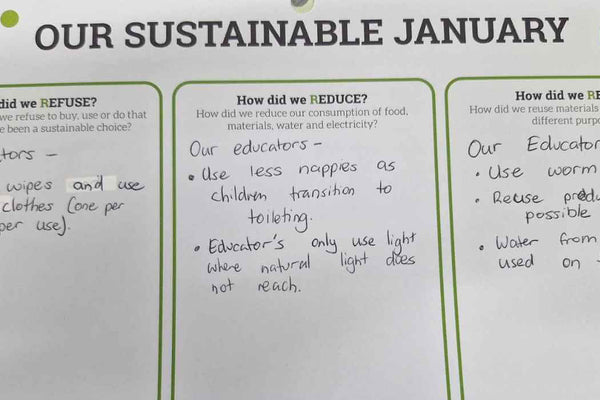 OUR SUSTAINABLE JANUARY
did we REFUSE?
we refuse to buy, use or do that
e been a sustainable choice?
tors -
wipes and use
clothes (one per
per use).
How did we REDUCE?
How did we reduce our consumption of food,
materials, water and electricity?
Our educators -
• Use less nappies as
children transition to
toileting.
• Educator's only use light
where natural light does
not reach.
How did we RE
How did we reuse materials
different purpo
Our Educator
• Use worm
• Reuse produ
possible
• Water from
used on